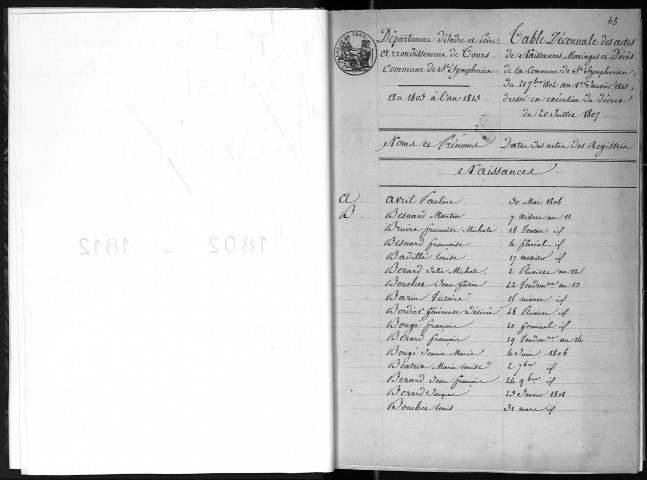 45
Département d'Indre et Loire
Arrondissement de Tours
Commune de St Symphorien
An 1803 à l'an 1813
Table Décennale des actes
de Naissances, Mariages et Décès
de la Commune de St Symphorien,
du 21 7bre 1802 au 1er Janvier 1813,
dressé en exécution du Décret
du 20 Juillet 1807.
Noms et Prénoms Dates des actes des Registres
Naissances
A. Avril Pauline 30 Mai 1806
B Besnard Martin 7 Nivose an 11
Bruère françoise Michele 18 Ventose id
Besnard françoise 4 floréal id
Badillé Louise 17 messidor id
Berard Julie Michele 2 Pluviose an 12
Boucher Jean Gatien 22 Vendmre an 13
Barin Victoire 15 nivose id
Bordier Généreuse Désirée 28 Pluviose id
Bougé françois 20 Germinal id
Bérard françois 19 Vendmre an 14
Bougé Jeanne Marie 4 Juin 1806
Béatrix Marie Louise 2 7bre id
Berard Jean françois 24 9bre id
Berard Jacques 23 Janvier 1808
Boucher Louis 31 mars id
1802 - 1812